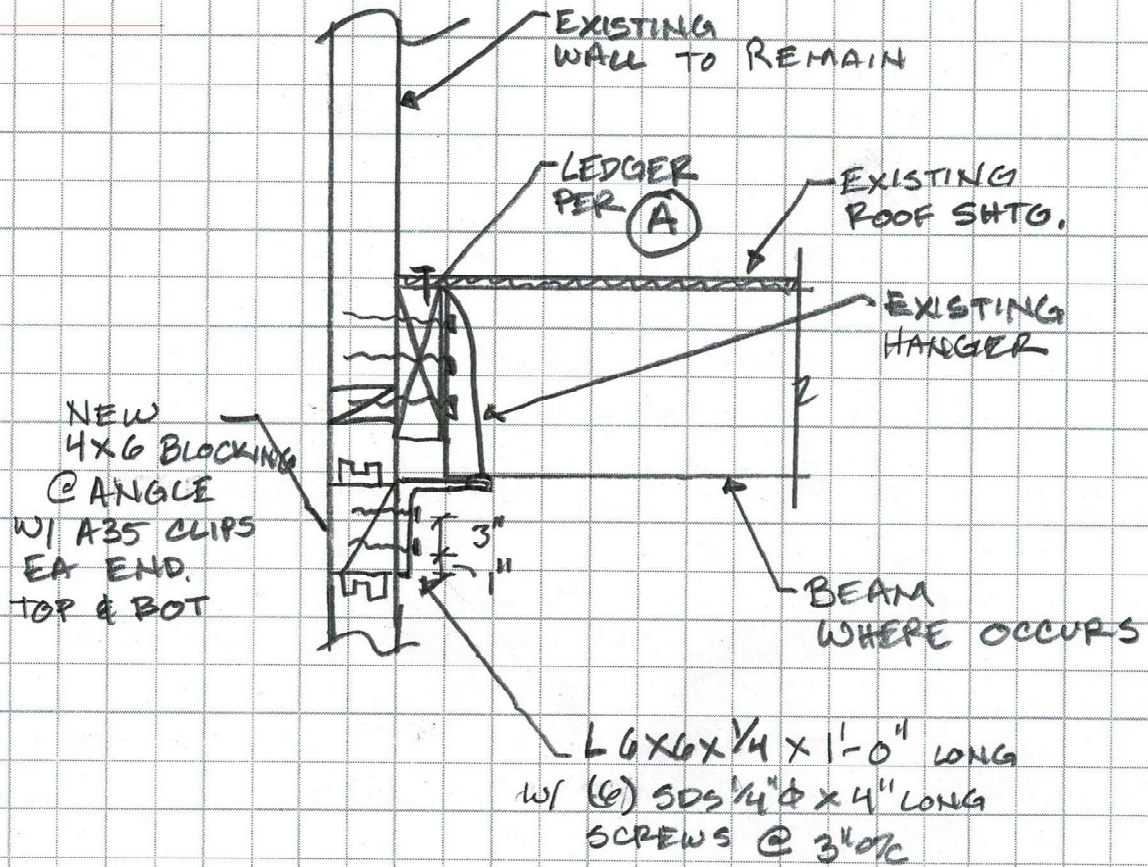 EXISTING
WALL TO REMAIN
LEDGER
PER A
EXISTING
ROOF SHTG.
EXISTING
HANGER
NEW
4X6 BLOCKING
@ ANGLE
W/ A35 CLIPS
EA END.
TOP & BOT
3"
1"
BEAM
WHERE OCCURS
L 6X6X1/4 X 1'-0" LONG
W/ (6) SDS 1/4"Φ X 4" LONG
SCREWS @ 3" O/C